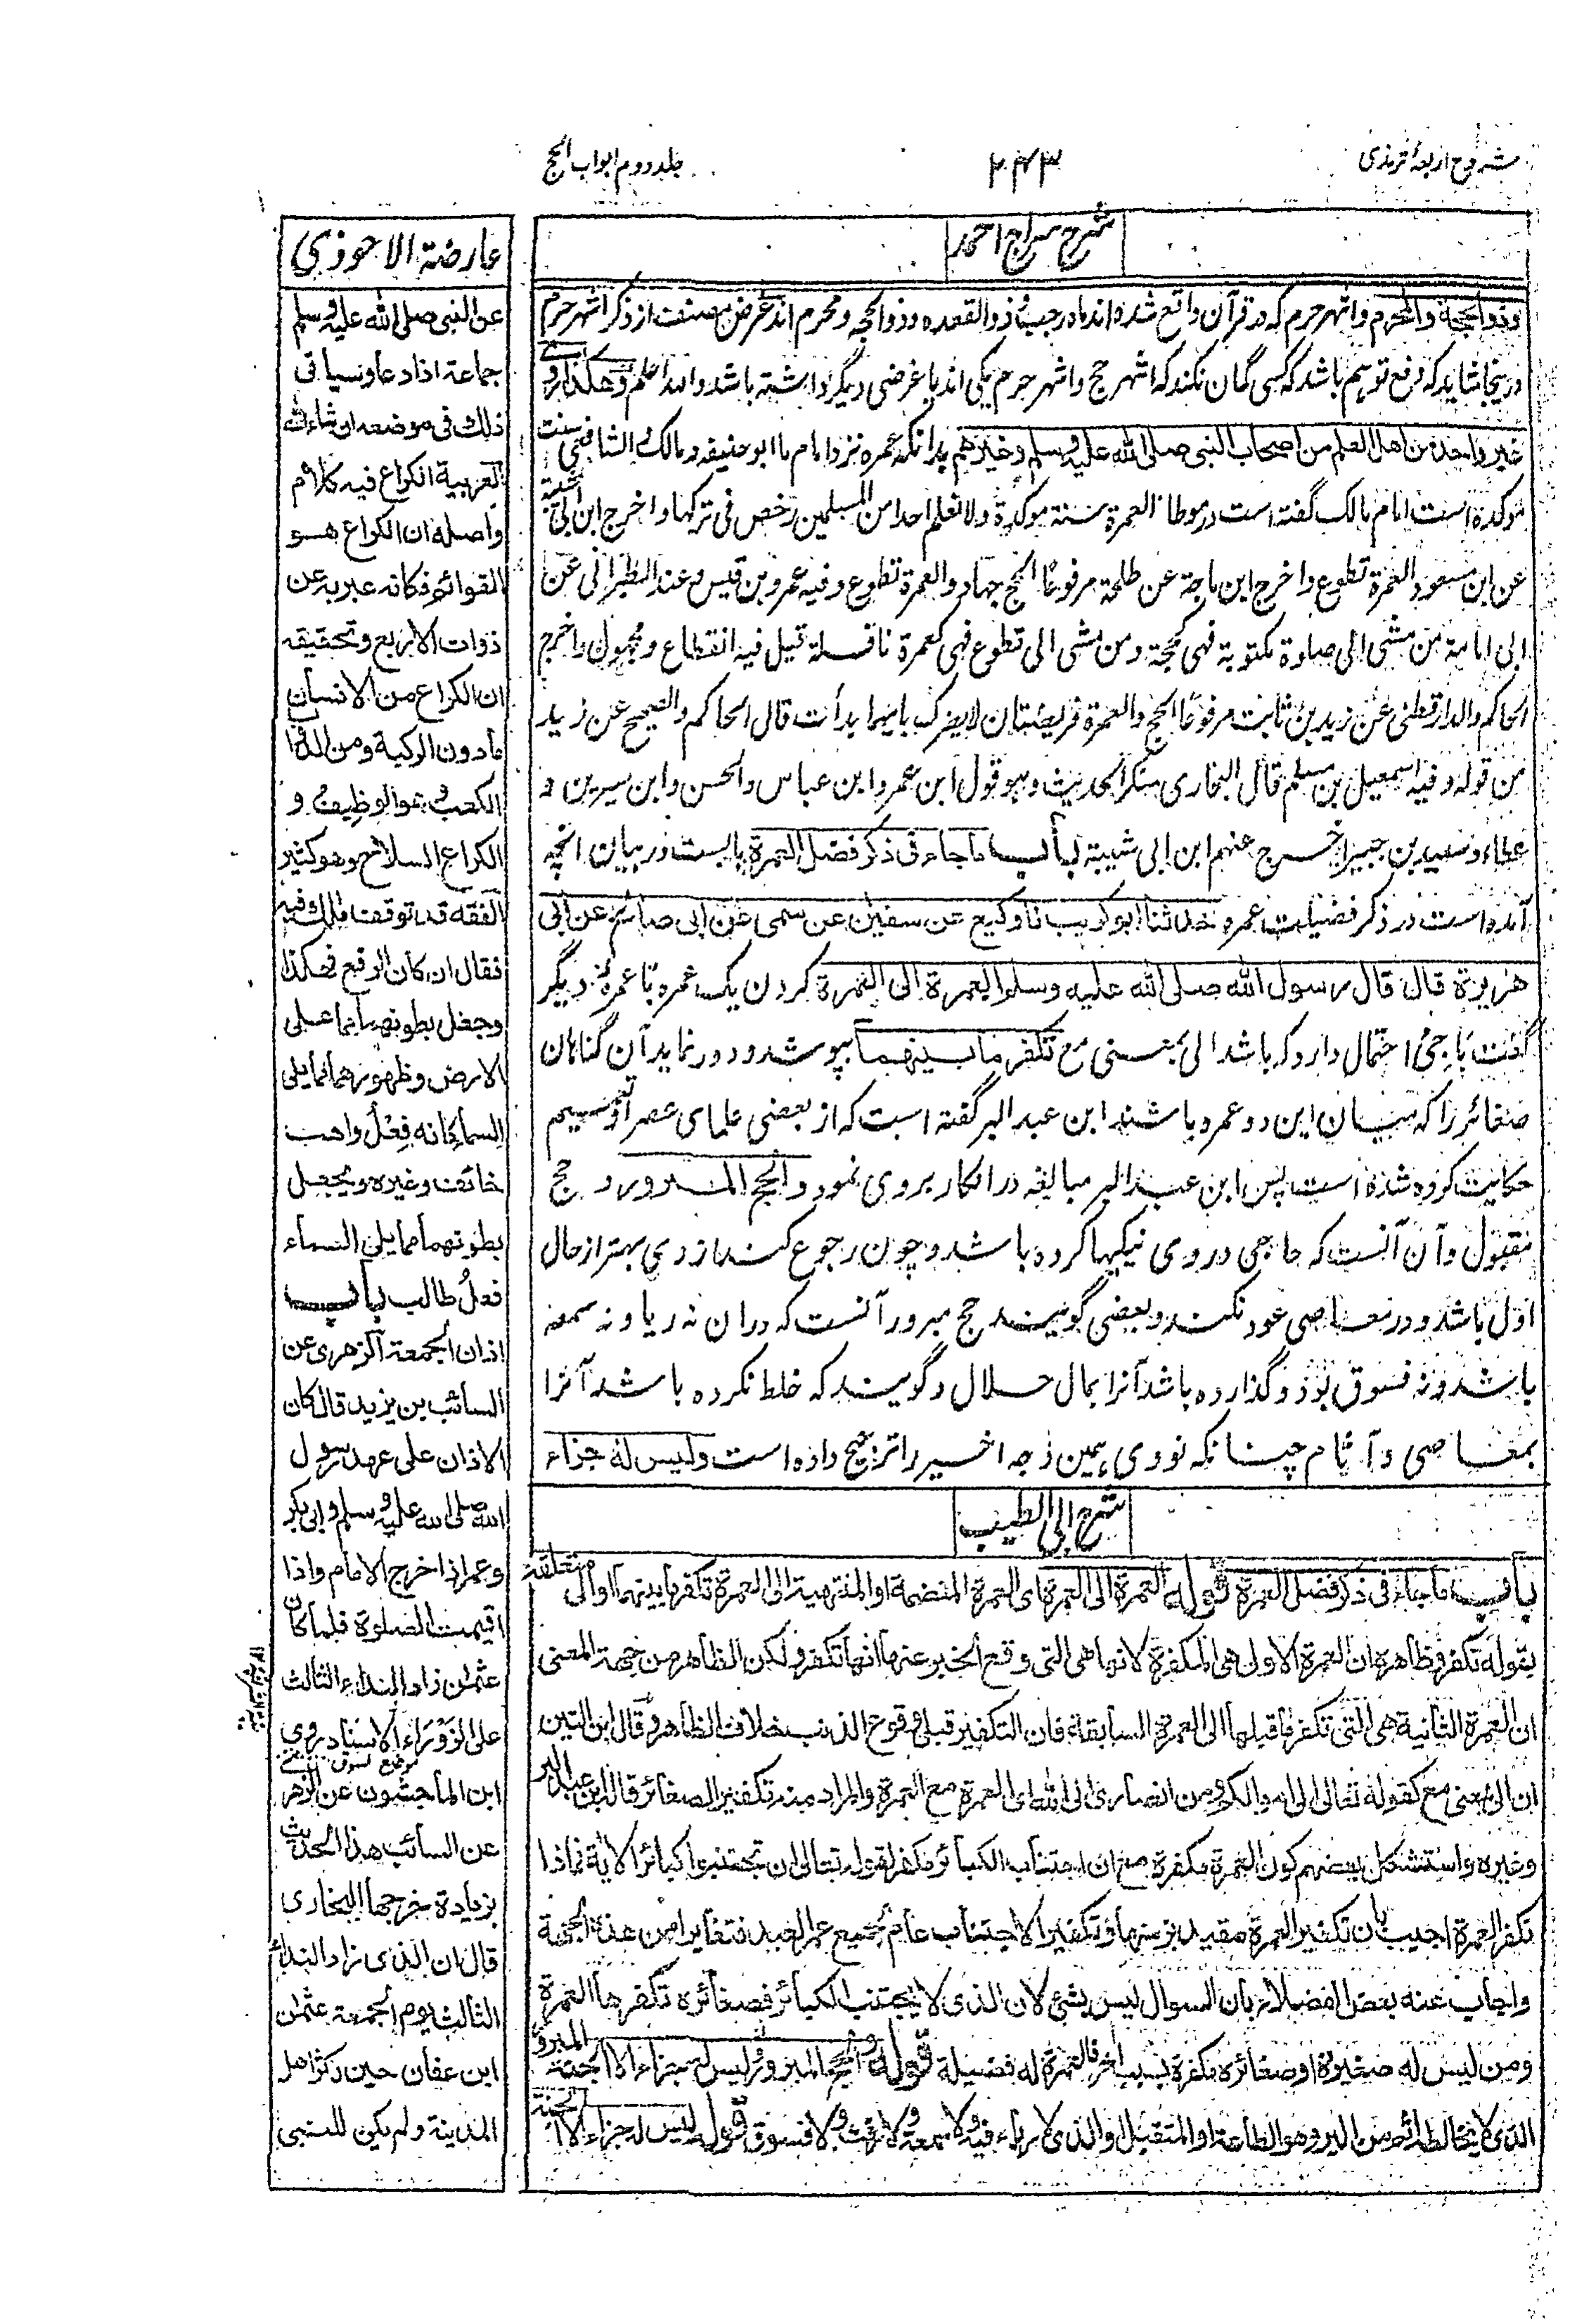 شروح اربعۂ ترمذی
۲۴۳
جلد دوم ابواب الحج
شرح سراج احمد
وذو الحجة والمحرم واشهر حرم که در قرآن واقع شده اند ماه رجب و ذوالقعده وذوالحجه ومحرم اند غرض مصنف از ذکر اشهر حرم
درینجا شاید که دفع توہم باشد که کسی گمان نکند که اشهر حج واشهر حرم یکی اند یا غرضی دیگر داشته باشد والله اعلم وهكذا روى
غير واحد من اهل العلم من اصحاب النبي صلى الله عليه وسلم وغيرهم بدانکه عمره نزد امام ما ابو حنیفه و مالک و الشافعی سنت
موکده است امام مالک گفته است در موطا العمرة سنة موكدة ولا نعلم احدا من المسلمين رخص فى تركها واخرج ابن ابى شيبة
عن ابن مسعود العمرة تطوع واخرج ابن ماجة عن طلحة مرفوعًا الحج جهاد والعمرة تطوع وفيه عمرو بن قيس وعند الطبرانى عن
ابى امامة من مشى الى صلوة مكتوبة فهى كحجة ومن مشى الى تطوع فهى كعمرة نافلة قيل فيه انقطاع ومجهول واخرج
الحاكم والدارقطنى عن زيد بن ثابت مرفوعًا الحج والعمرة فريضتان لا يضرك بايهما بدأت قال الحاكم والصحيح عن زيد
من قوله وفيه اسمعيل بن مسلم قال البخارى منكر الحديث وهو قول ابن عمر وابن عباس والحسن وابن سيرين و
عطاء وسعيد بن جبير اخرج عنهم ابن ابى شيبة باب ما جاء فى ذكر فضل العمرة بابست در بیان انچه
آمده است در ذکر فضیلت عمره حدثنا ابو كريب نا وكيع عن سفين عن سمى عن ابى صالح عن ابى
هريرة قال قال رسول الله صلى الله عليه وسلم العمرة الى العمرة کردن یک عمره تا عمرۂ دیگر
احتمال دارد که باشد الی بمعنی مع تكفر ما بينهما بپوشد و دور نماید آن گناهان
صغائر را که میان این دو عمره باشند ابن عبد البر گفته است که از بعضی علمای عصر او تعمیم
حکایت کرده شده است پس ابن عبد البر مبالغه در انکار بر وی نمود والحج المبرور و حج
مقبول وآن آنست که حاجی در وی نیکیها کرده باشد و چون رجوع کند از وی بهتر از حال
اول باشد و در معاصی عود نکند و بعضی گویند حج مبرور آنست که دران نه ریا و نه سمعه
باشد و نه فسوق بود و گذارده باشد آنرا بمال حلال و گویند که خلط نکرده باشد آنرا
بمعاصی و آثام چنانکه نووی همین وجه اخیر را ترجیح داده است وليس له جزاء
شرح ابی الطیب
باب ما جاء فى ذكر فضل العمرة قوله العمرة الى العمرة اى العمرة المنضمة او المنتهية الى العمرة تكفر ما بينهما او الى متعلقة
بقوله تكفر وظاهره ان العمرة الاولى هى المكفرة لانها هى التى وقع الخبر عنها انها تكفر ولكن الظاهر من جهة المعنى
ان العمرة الثانية هى التى تكفر ما قبلها الى العمرة السابقة فان التكفير قبل وقوع الذنب خلاف الظاهر وقال ابن التين
ان الى بمعنى مع كقوله تعالى الى اموالكم ومن انصارى الى الله اى العمرة مع العمرة والمراد منه تكفير الصغائر قال ابن عبد البر
وغيره واستشكل بعضهم كون العمرة مكفرة مع ان اجتناب الكبائر مكفر لقوله تعالى ان تجتنبوا كبائر الاية فماذا
تكفر العمرة اجيب بان تكفير العمرة مقيد بزمنها وتكفير الاجتناب عام لجميع عمر العبد فتغايرا من هذه الجهة
واجاب عنه بعض الفضلاء بان السوال ليس بشئ لان الذى لا يجتنب الكبائر فصغائره تكفرها العمرة
ومن ليس له صغيرة او صغائره مكفرة بسبب اخر فالعمرة له فضيلة قوله والحج المبرور ليس له جزاء الا الجنة المبرور
الذى لا يخالطه اثم من البر وهو الطاعة او المتقبل او الذى لا رياء فيه ولا سمعة ولا رفث ولا فسوق قوله ليس له جزاء الا الجنة
عارضة الاحوذي
عن النبى صلى الله عليه وسلم
جماعة اذا دعا وسياتى
ذلك فى موضعه ان شاء الله
العربية الكراع فيه كلام
واصله ان الكراع هو
القوائم فكانه عبر به عن
ذوات الاربع وتحقيقه
ان الكراع من الانسان
ما دون الركبة ومن الدواب
الكعب وهو الوظيف و
الكراع السلاح وهو كثير
الفقه قد توقف مالك فيه
فقال ان كان الرفع فهكذا
وجعل بطونهما مما على
الارض وظهورهما مما يلى
السماء كانه فعل واهب
خائف وغيره ويجعل
بطونهما مما يلى السماء
فعل طالب باب
اذان الجمعة الزهرى عن
السائب بن يزيد قال كان
الاذان على عهد رسول
الله صلى الله عليه وسلم وابى بكر
وعمر اذا خرج الامام واذا
اقيمت الصلوة فلما كان
عثمان زاد النداء الثالث
على الزوراء الاسناد روى
ابن الماجشون عن الزهر
عن السائب هذا الحديث
بزيادة خرجها البخارى
قال ان الذى زاد النداء
الثالث يوم الجمعة عثمان
ابن عفان حين كثر اهل
المدينة ولم يكن للنبى